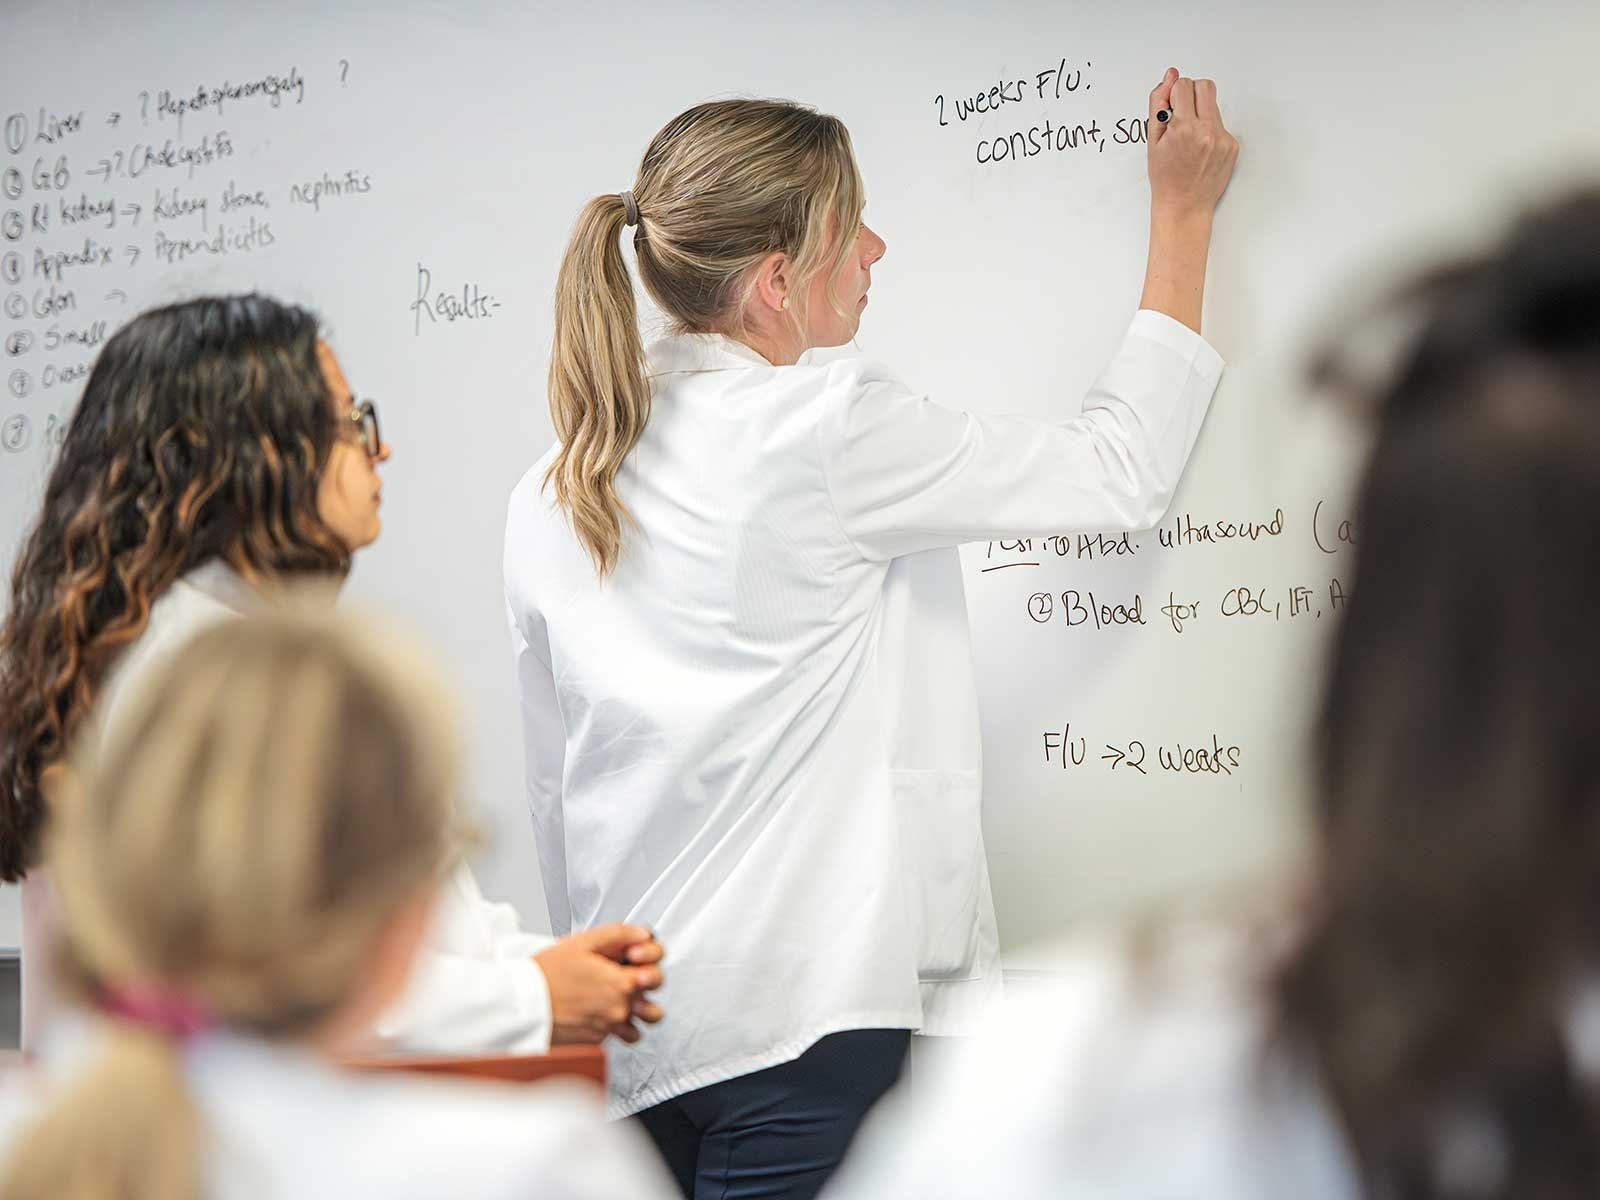 ① Liver → ? Hepatosplenomegaly ?
② GB → ? Cholecystitis
③ Rt kidney → kidney stone, nephritis
④ Appendix → Appendicitis
⑤ Colon →
⑥ Small
⑦
Results:-
2 weeks F/U:
constant, sa
Abd. ultrasound (a
② Blood for CBC, LFT, A
F/U → 2 weeks